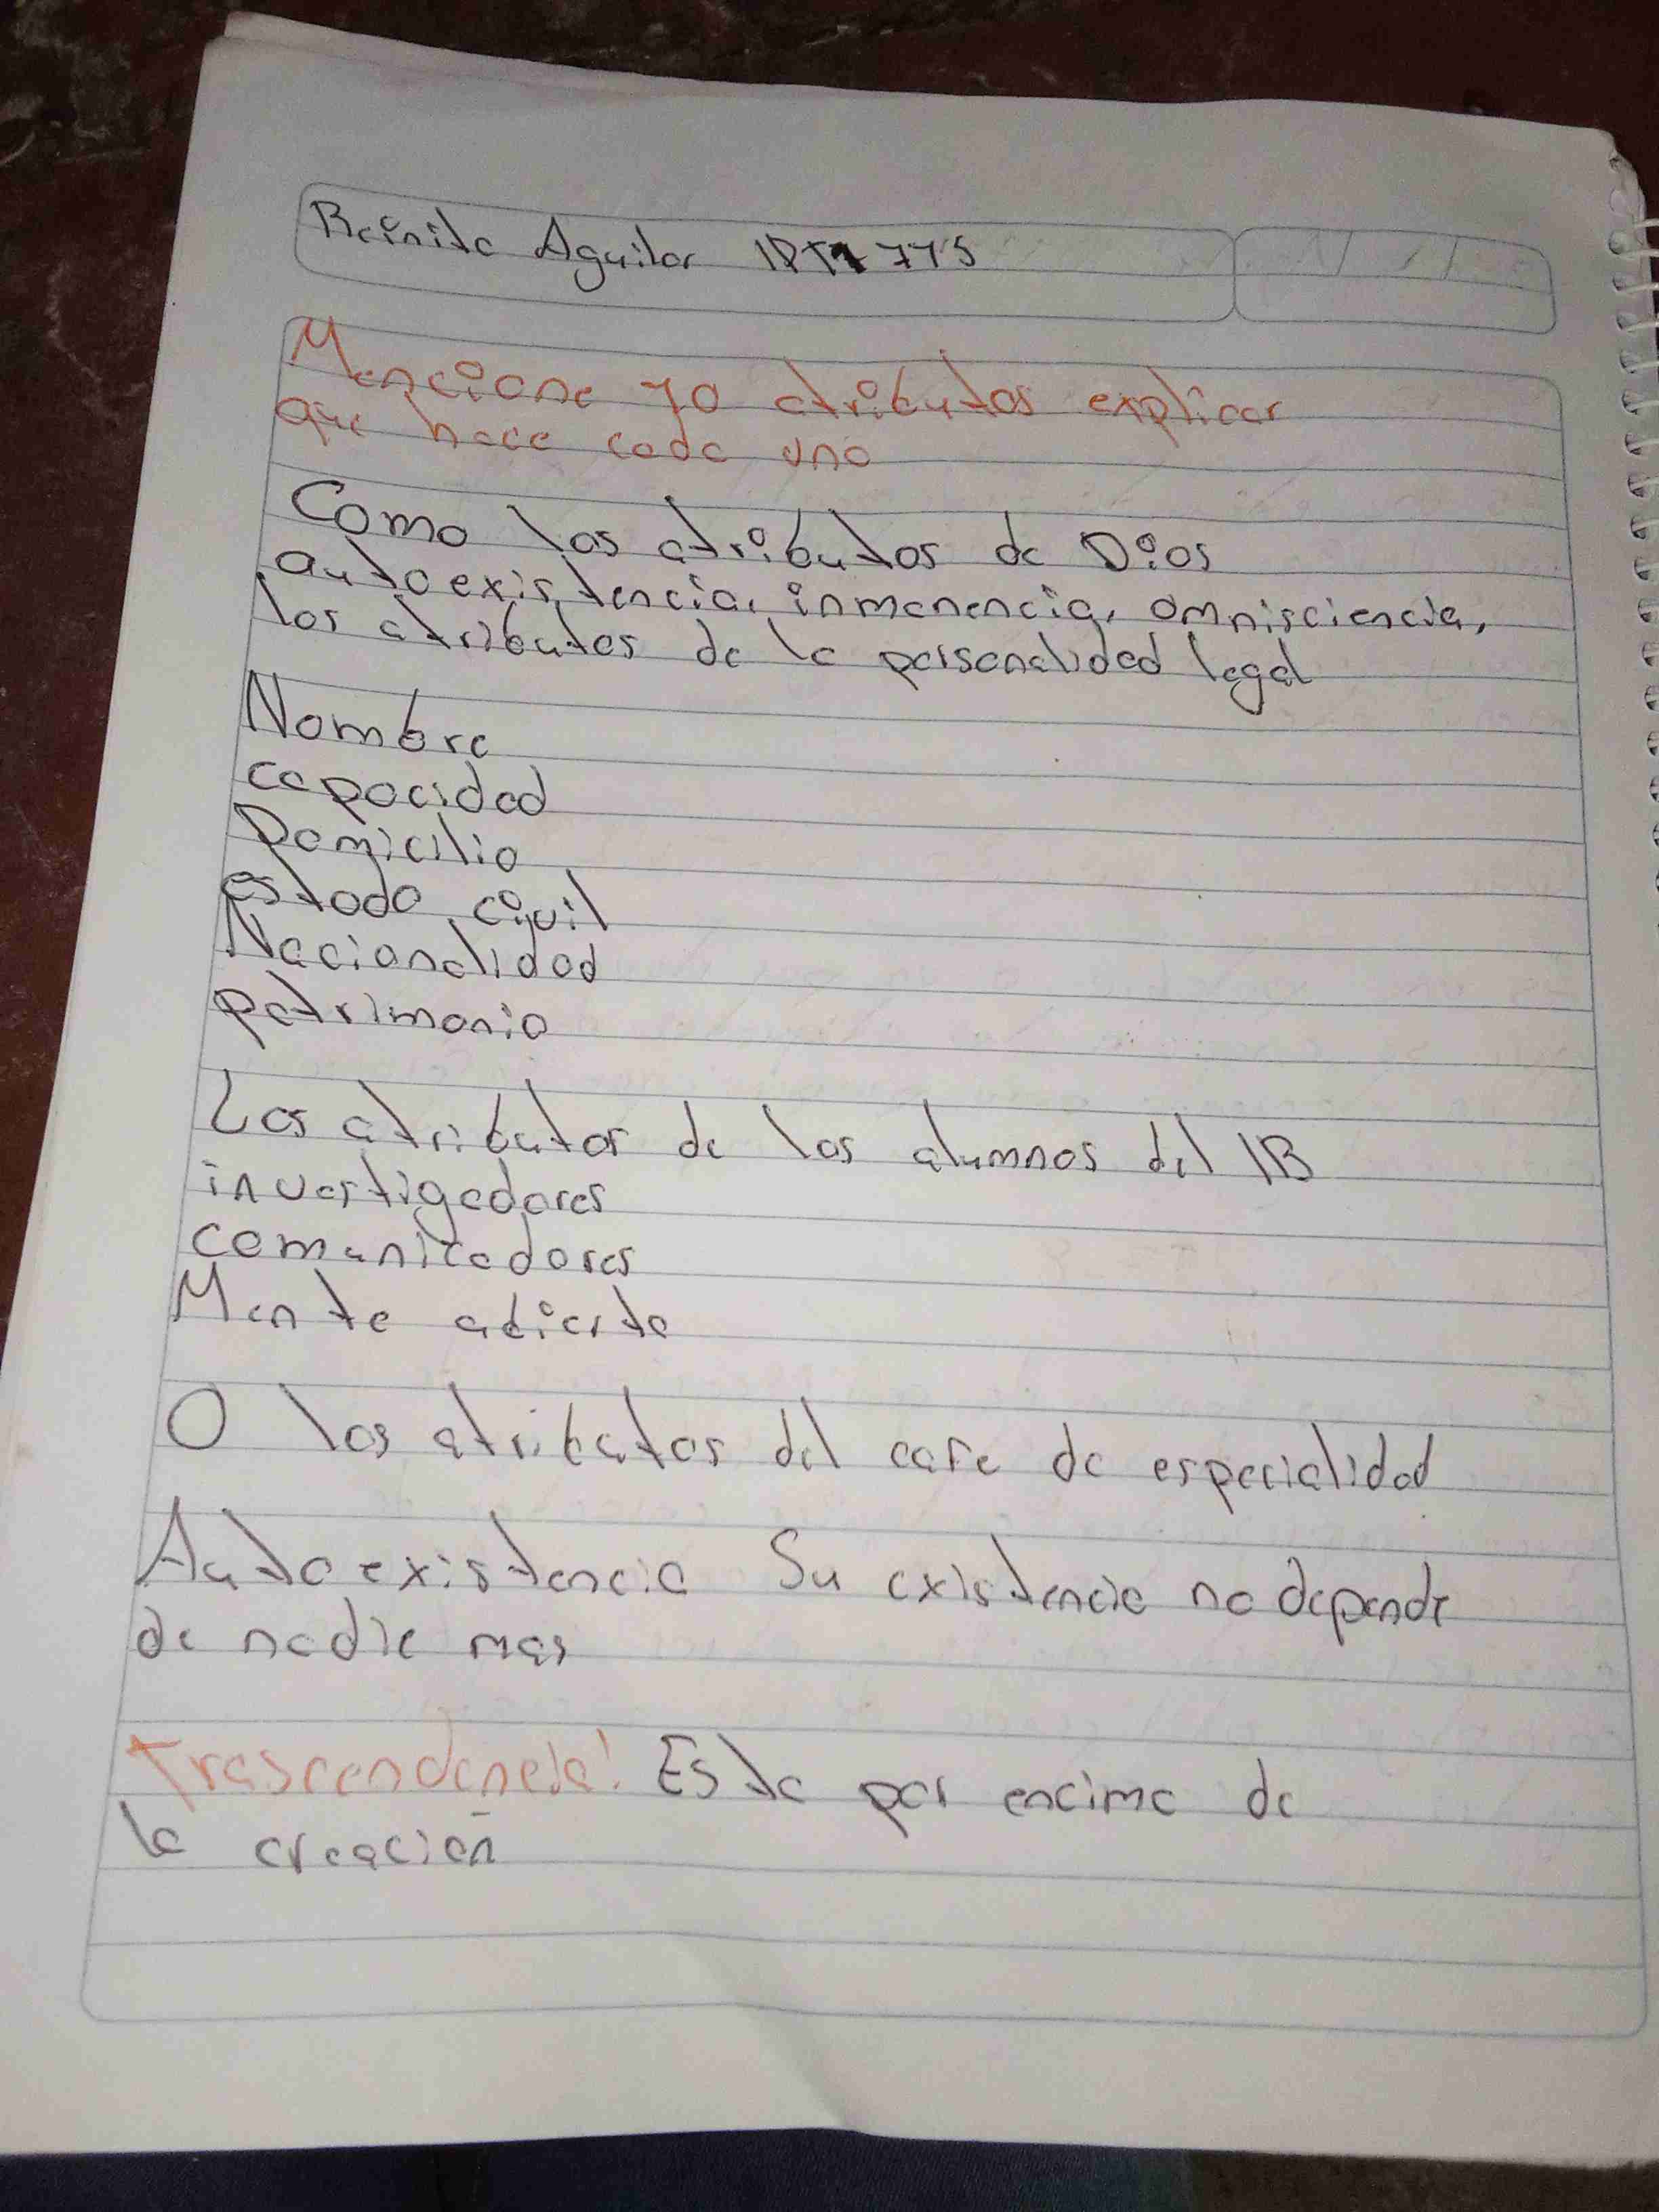 Reinita Aguilar 775
Mencione 10 atributos explicar
que hace cada uno
Como los atributos de Dios
autoexistencia, inmanencia, omnisciencia,
los atributos de la personalidad legal
Nombre
capacidad
Domicilio
estado civil
Nacionalidad
patrimonio
Los atributos de los alumnos del IB
investigadores
comunicadores
Mente abierta
O los atributos del cafe de especialidad
Autoexistencia Su existencia no depende
de nadie mas
Trascendencia: Esta por encima de
la creación